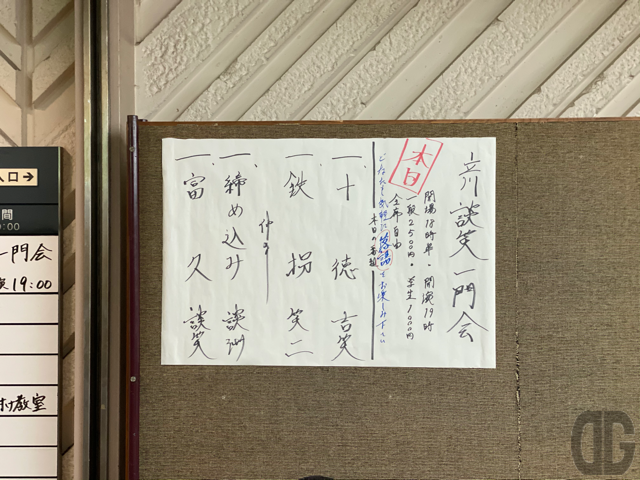 立川談笑一門会
本日
開場18時半・開演19時
一般2500円・学生1000円
全席自由
どなたも気軽に落語をお楽しみ下さい
本日の番組
一、十徳 吉笑
一、鉄拐 笑二
仲入り
一、締め込み 談洲
一、富久 談笑
入口→
間
:00
一門会
演19:00
教室
DG